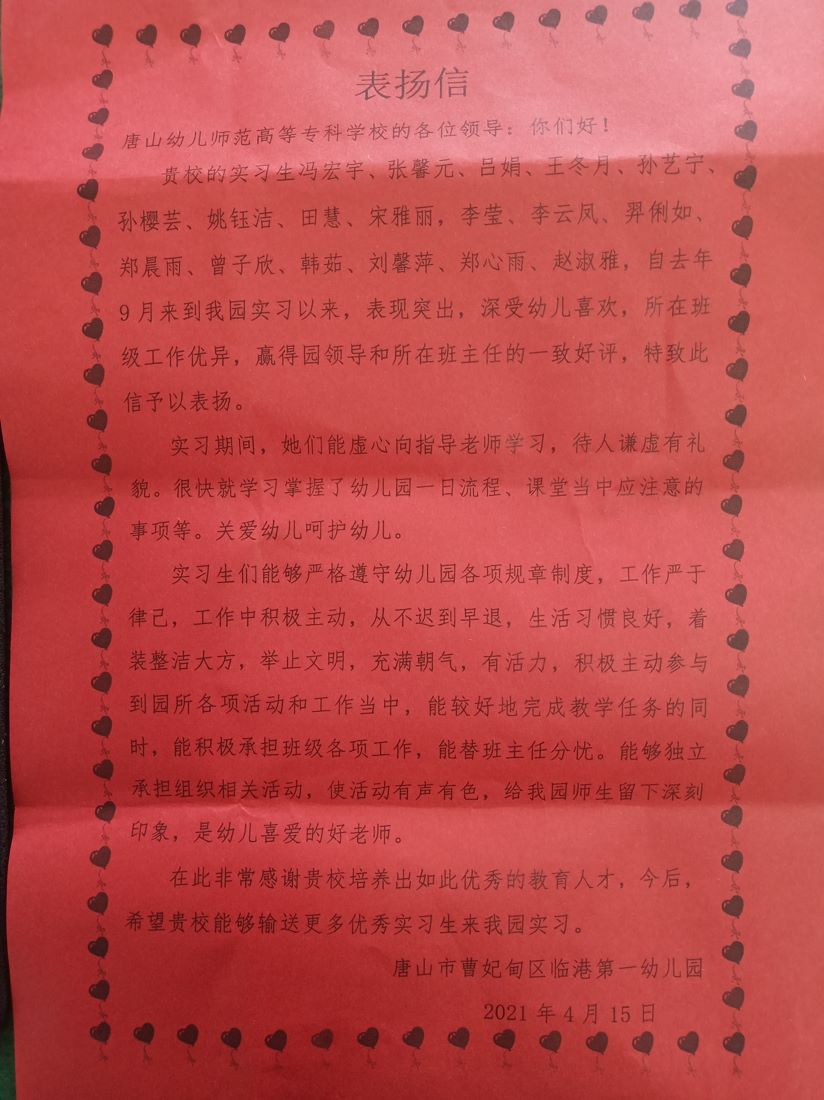 表扬信
唐山幼儿师范高等专科学校的各位领导：你们好！
贵校的实习生冯宏宇、张馨元、吕娟、王冬月、孙艺宁、
孙樱芸、姚钰洁、田慧、宋雅丽，李莹、李云凤、羿俐如、
郑晨雨、曾子欣、韩茹、刘馨萍、郑心雨、赵淑雅，自去年
9月来到我园实习以来，表现突出，深受幼儿喜欢，所在班
级工作优异，赢得园领导和所在班主任的一致好评，特致此
信予以表扬。
实习期间，她们能虚心向指导老师学习，待人谦虚有礼
貌。很快就学习掌握了幼儿园一日流程、课堂当中应注意的
事项等。关爱幼儿呵护幼儿。
实习生们能够严格遵守幼儿园各项规章制度，工作严于
律己，工作中积极主动，从不迟到早退，生活习惯良好，着
装整洁大方，举止文明，充满朝气，有活力，积极主动参与
到园所各项活动和工作当中，能较好地完成教学任务的同
时，能积极承担班级各项工作，能替班主任分忧。能够独立
承担组织相关活动，使活动有声有色，给我园师生留下深刻
印象，是幼儿喜爱的好老师。
在此非常感谢贵校培养出如此优秀的教育人才，今后，
希望贵校能够输送更多优秀实习生来我园实习。
唐山市曹妃甸区临港第一幼儿园
2021年4月15日